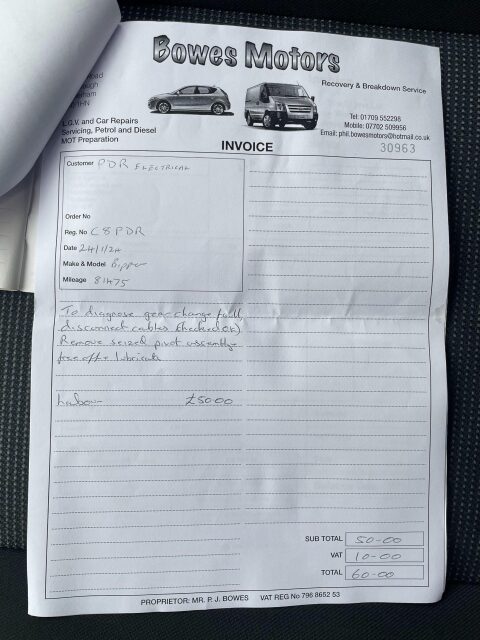 Bowes Motors
Road
ough
ham
HN
Recovery & Breakdown Service
L.G.V. and Car Repairs
Servicing, Petrol and Diesel
MOT Preparation
Tel: 01709 552298
Mobile: 07702 509956
Email: phil.bowesmotors@hotmail.co.uk
INVOICE
30963
Customer PDR ELECTRICAL
Order No
Reg. No C8PDR
Date 24/1/24
Make & Model Bipper
Mileage 81475
To diagnose gear change fault,
disconnect cables (checked ok)
Remove seized pivot assembly
free off + lubricate
Labour £50.00
SUB TOTAL 50-00
VAT 10-00
TOTAL 60-00
PROPRIETOR: MR. P. J. BOWES VAT REG No 796 8652 53